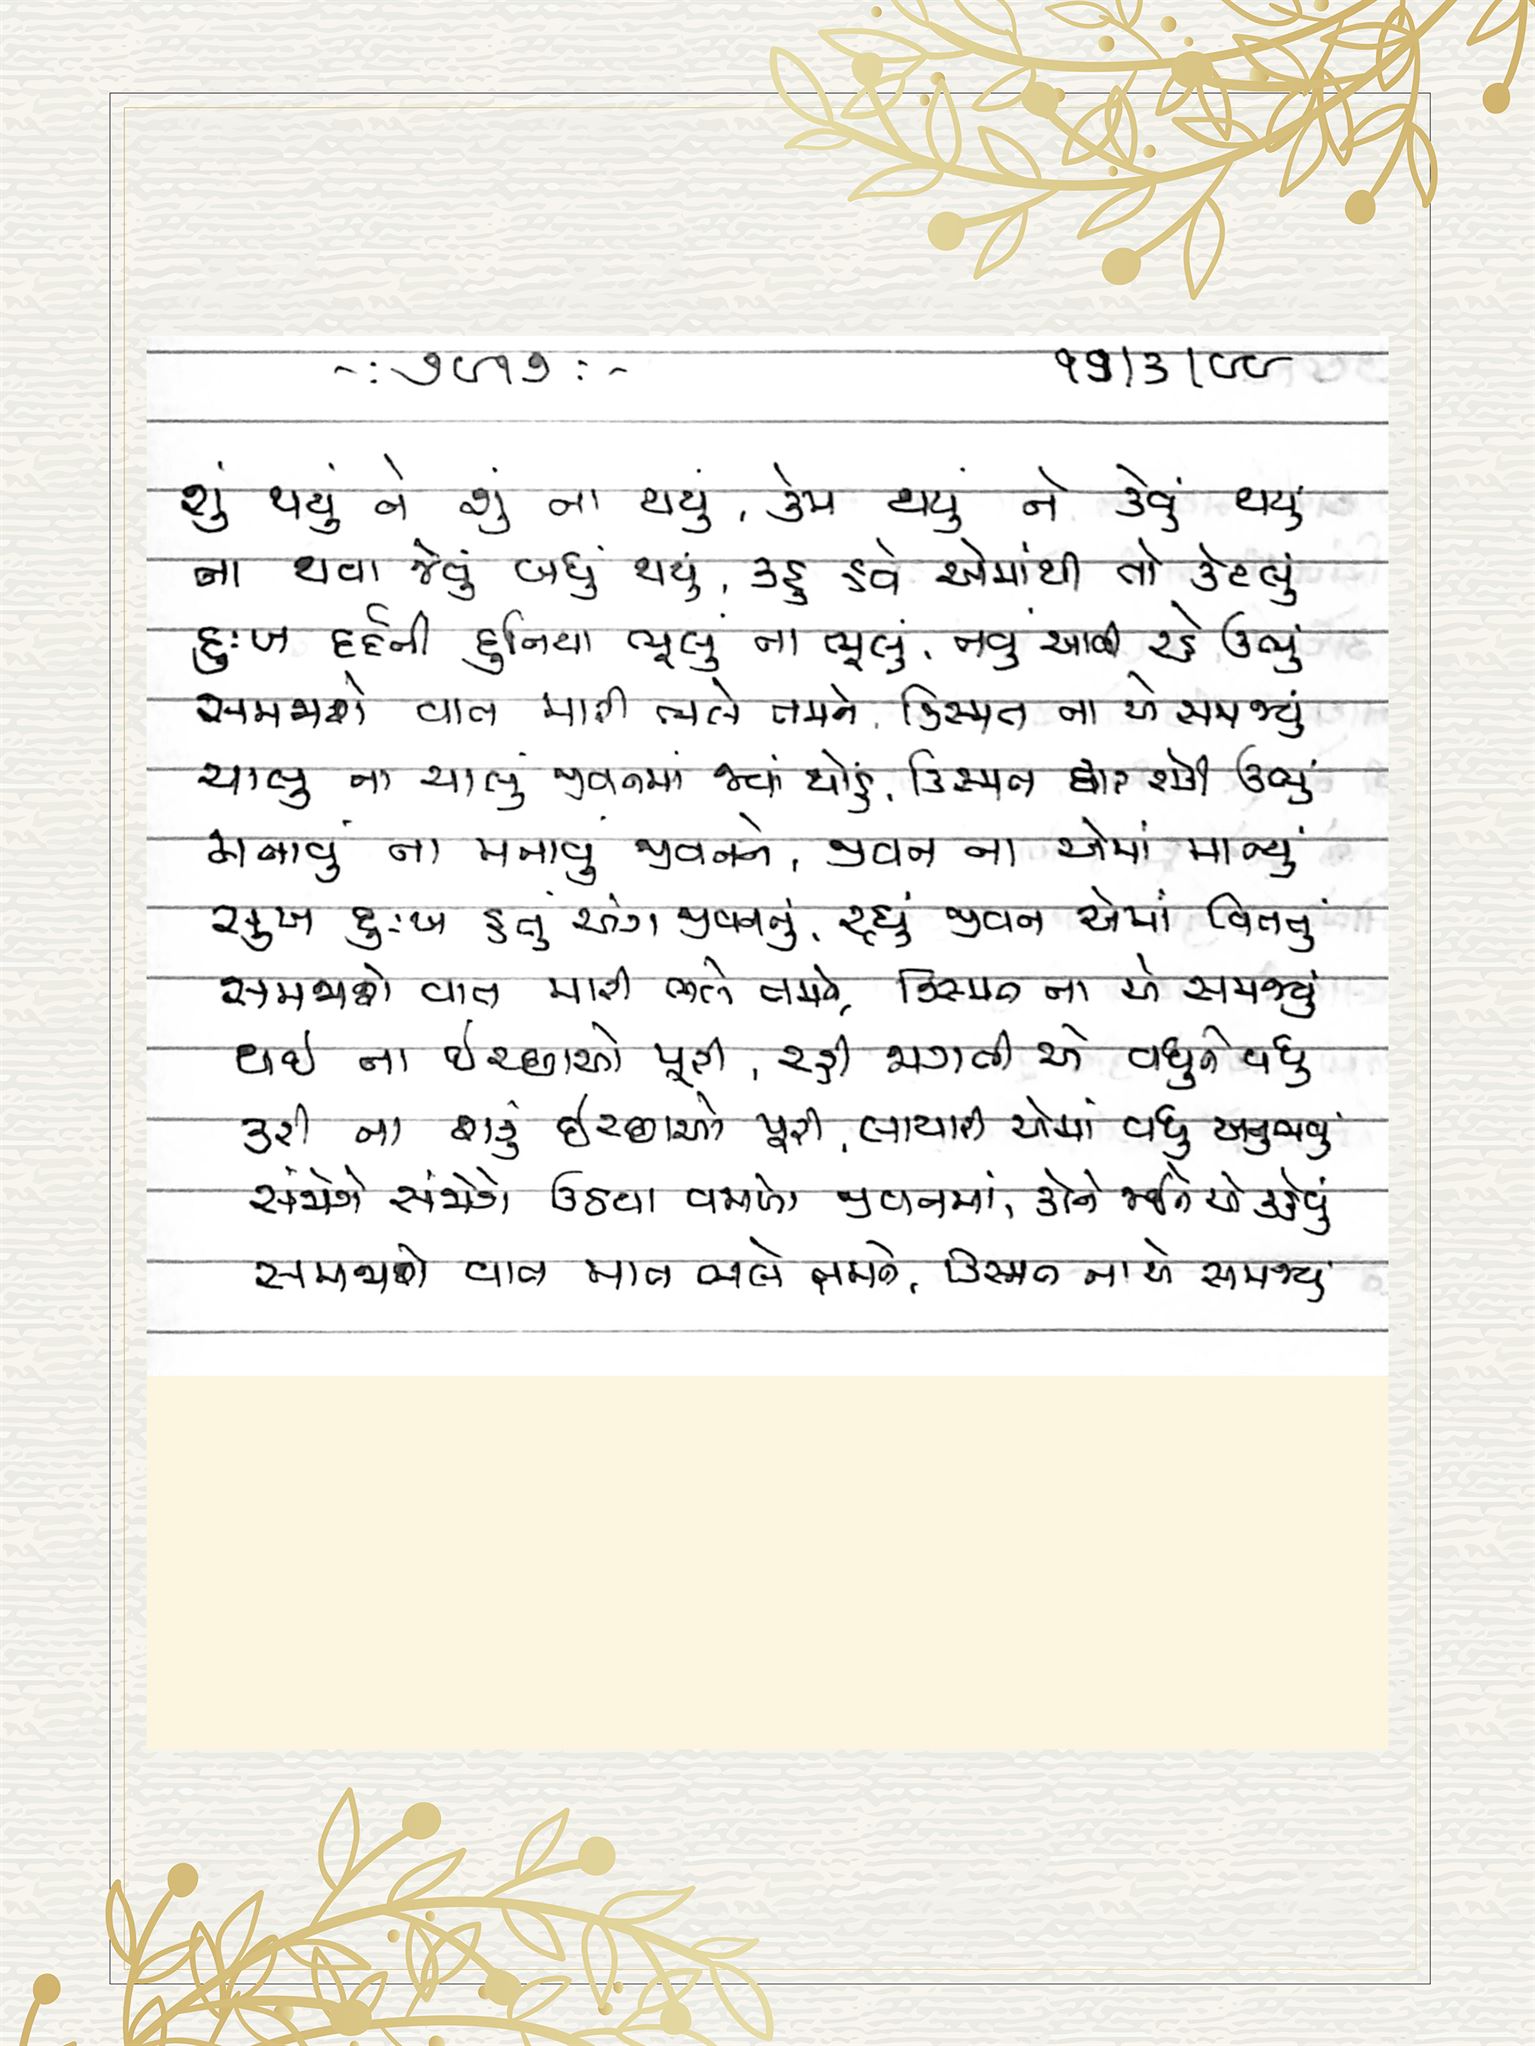 ~: ૭૯૧૭ :~ ૧૭/૩/૯૯
શું થયું ને શું ના થયું, કેમ થયું ને કેવું થયું
ના થવા જેવું બધું થયું, કહુ હવે એમાંથી તો કેટલું
દુઃખ દર્દની દુનિયા ભૂલું ના ભૂલું, નવું આવી રહે ઉભું
સમજાશે વાત મારી ભલે તમને, કિસ્મત ના એ સમજ્યું
ચાલુ ના ચાલું જીવનમાં જ્યાં થોડું, કિસ્મત દ્વાર રોકી ઉભું
મનાવું ના મનાવું જીવનને, જીવન ના એમાં માન્યું
સુખ દુઃખ હતું અંગ જીવનનું, રહ્યું જીવન એમાં વિતતું
સમજાશે વાત મારી ભલે તમને, કિસ્મત ના એ સમજ્યું
થઈ ના ઈચ્છાઓ પૂરી, રહી જાગતી એ વધુને વધુ
કરી ના શકું ઈચ્છાઓ પૂરી, લાચારી એમાં વધુ અનુભવું
સંજોગો સંજોગે ઉઠયા વમળો જીવનમાં, કોને જઈને એ કહેવું
સમજાશે વાત માત ભલે તમને, કિસ્મત ના એ સમજ્યું